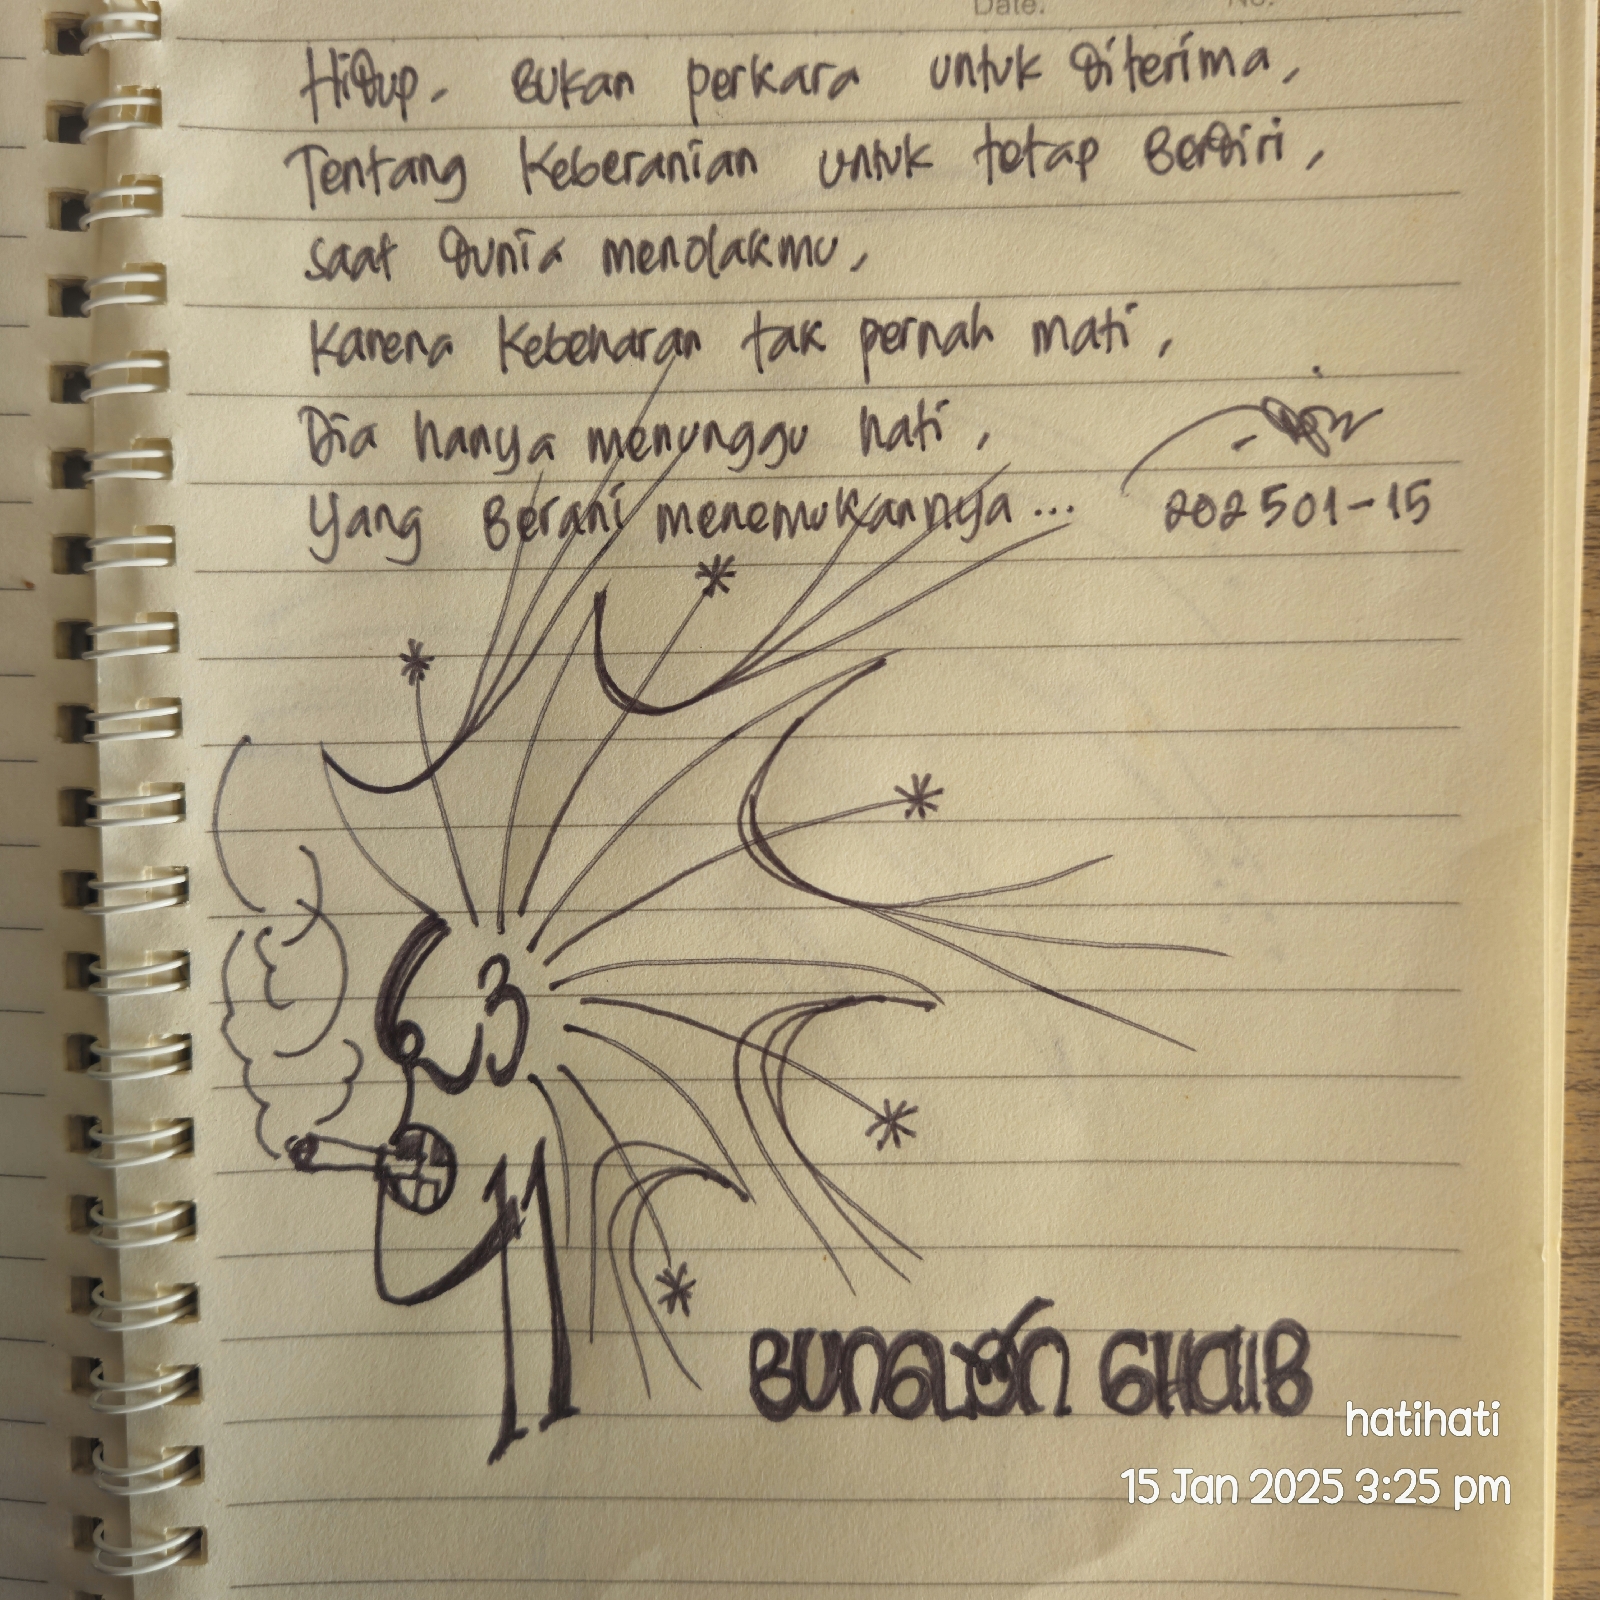 Date. No.
Hidup. Bukan perkara untuk Diterima,
Tentang Keberanian untuk tetap Berdiri,
saat Dunia menolakmu,
Karena Kebenaran tak pernah mati,
Dia hanya menunggu hati,
Yang Berani menemukannya...
202501-15
BUNGLON GHAIB
hatihati
15 Jan 2025 3:25 pm